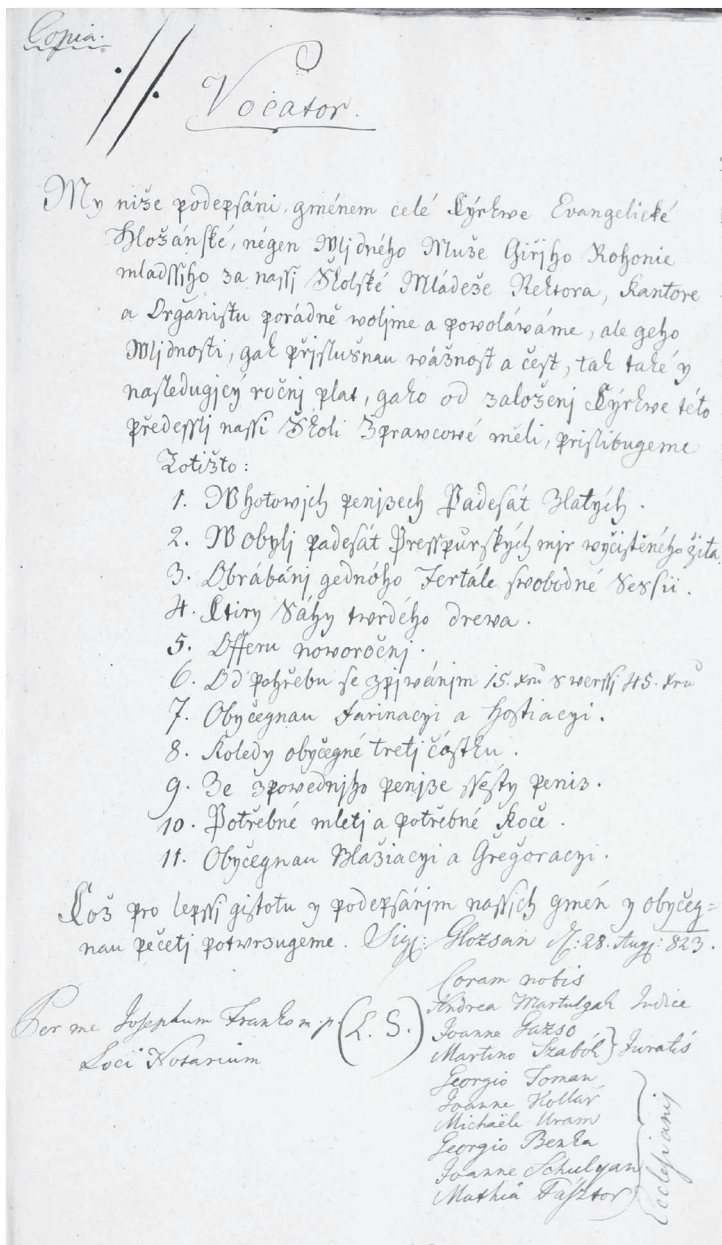 Copia.
Vocator.
My niže podepsáni, gménem celé Cýrkwe Evangelické
Hložánské, négen Wljdného Muže Giřjho Rohonie
mladssjho za nassj Školské Mládeže Rektora, Kantore
a Organistu porádně woljme a powoláváme, ale geho
Wljdnosti, gak přjslussnau wážnost a čest, tak také y
nasledugjcý ročnj plat, gako od založenj Cýrkwe této
předesslj nassj Školi Zprawcowé měli, prislibugeme
Totižto:
1. W hotowjch penjzech Padesát Zlatých.
2. W obylj padesát Presspurských mjr wyčistěného žita.
3. Obrábánj gedného Fertále swobodné Sessii.
4. Ctiry Sáhy twrdého drewa.
5. Offeru noworočnj.
6. Od pohřebu se zpjwánjm 15. xrů s werssj 45. xrů
7. Obyčegnau Farinacyi a Hostiacyi.
8. Koledy obyčegné tretj částku.
9. Ze zpowednjho penjze ssésty penjz.
10. Potřebné mletj a potřebné Koče.
11. Obyčegnau Blažiacyi a Gregoracyi.
Což pro lepssj gistotu y podepsánjm nassjch gmén y obyčeg=
nau pečetj potwrzugeme. Sigl: Glozsan d: 28. Augs: 823.
Coram nobis
Andrea Martulgak Judice
Per me Josephum Franko m.p. (L. S.) Joanne Guzso
Martino Szabó } Juratis
Loci Notarium
Georgio Toman
Joanne Kollár
Michaële Uram
Georgio Benka
Joanne Schulyan
Mathia Fásztor
Ecclesianij